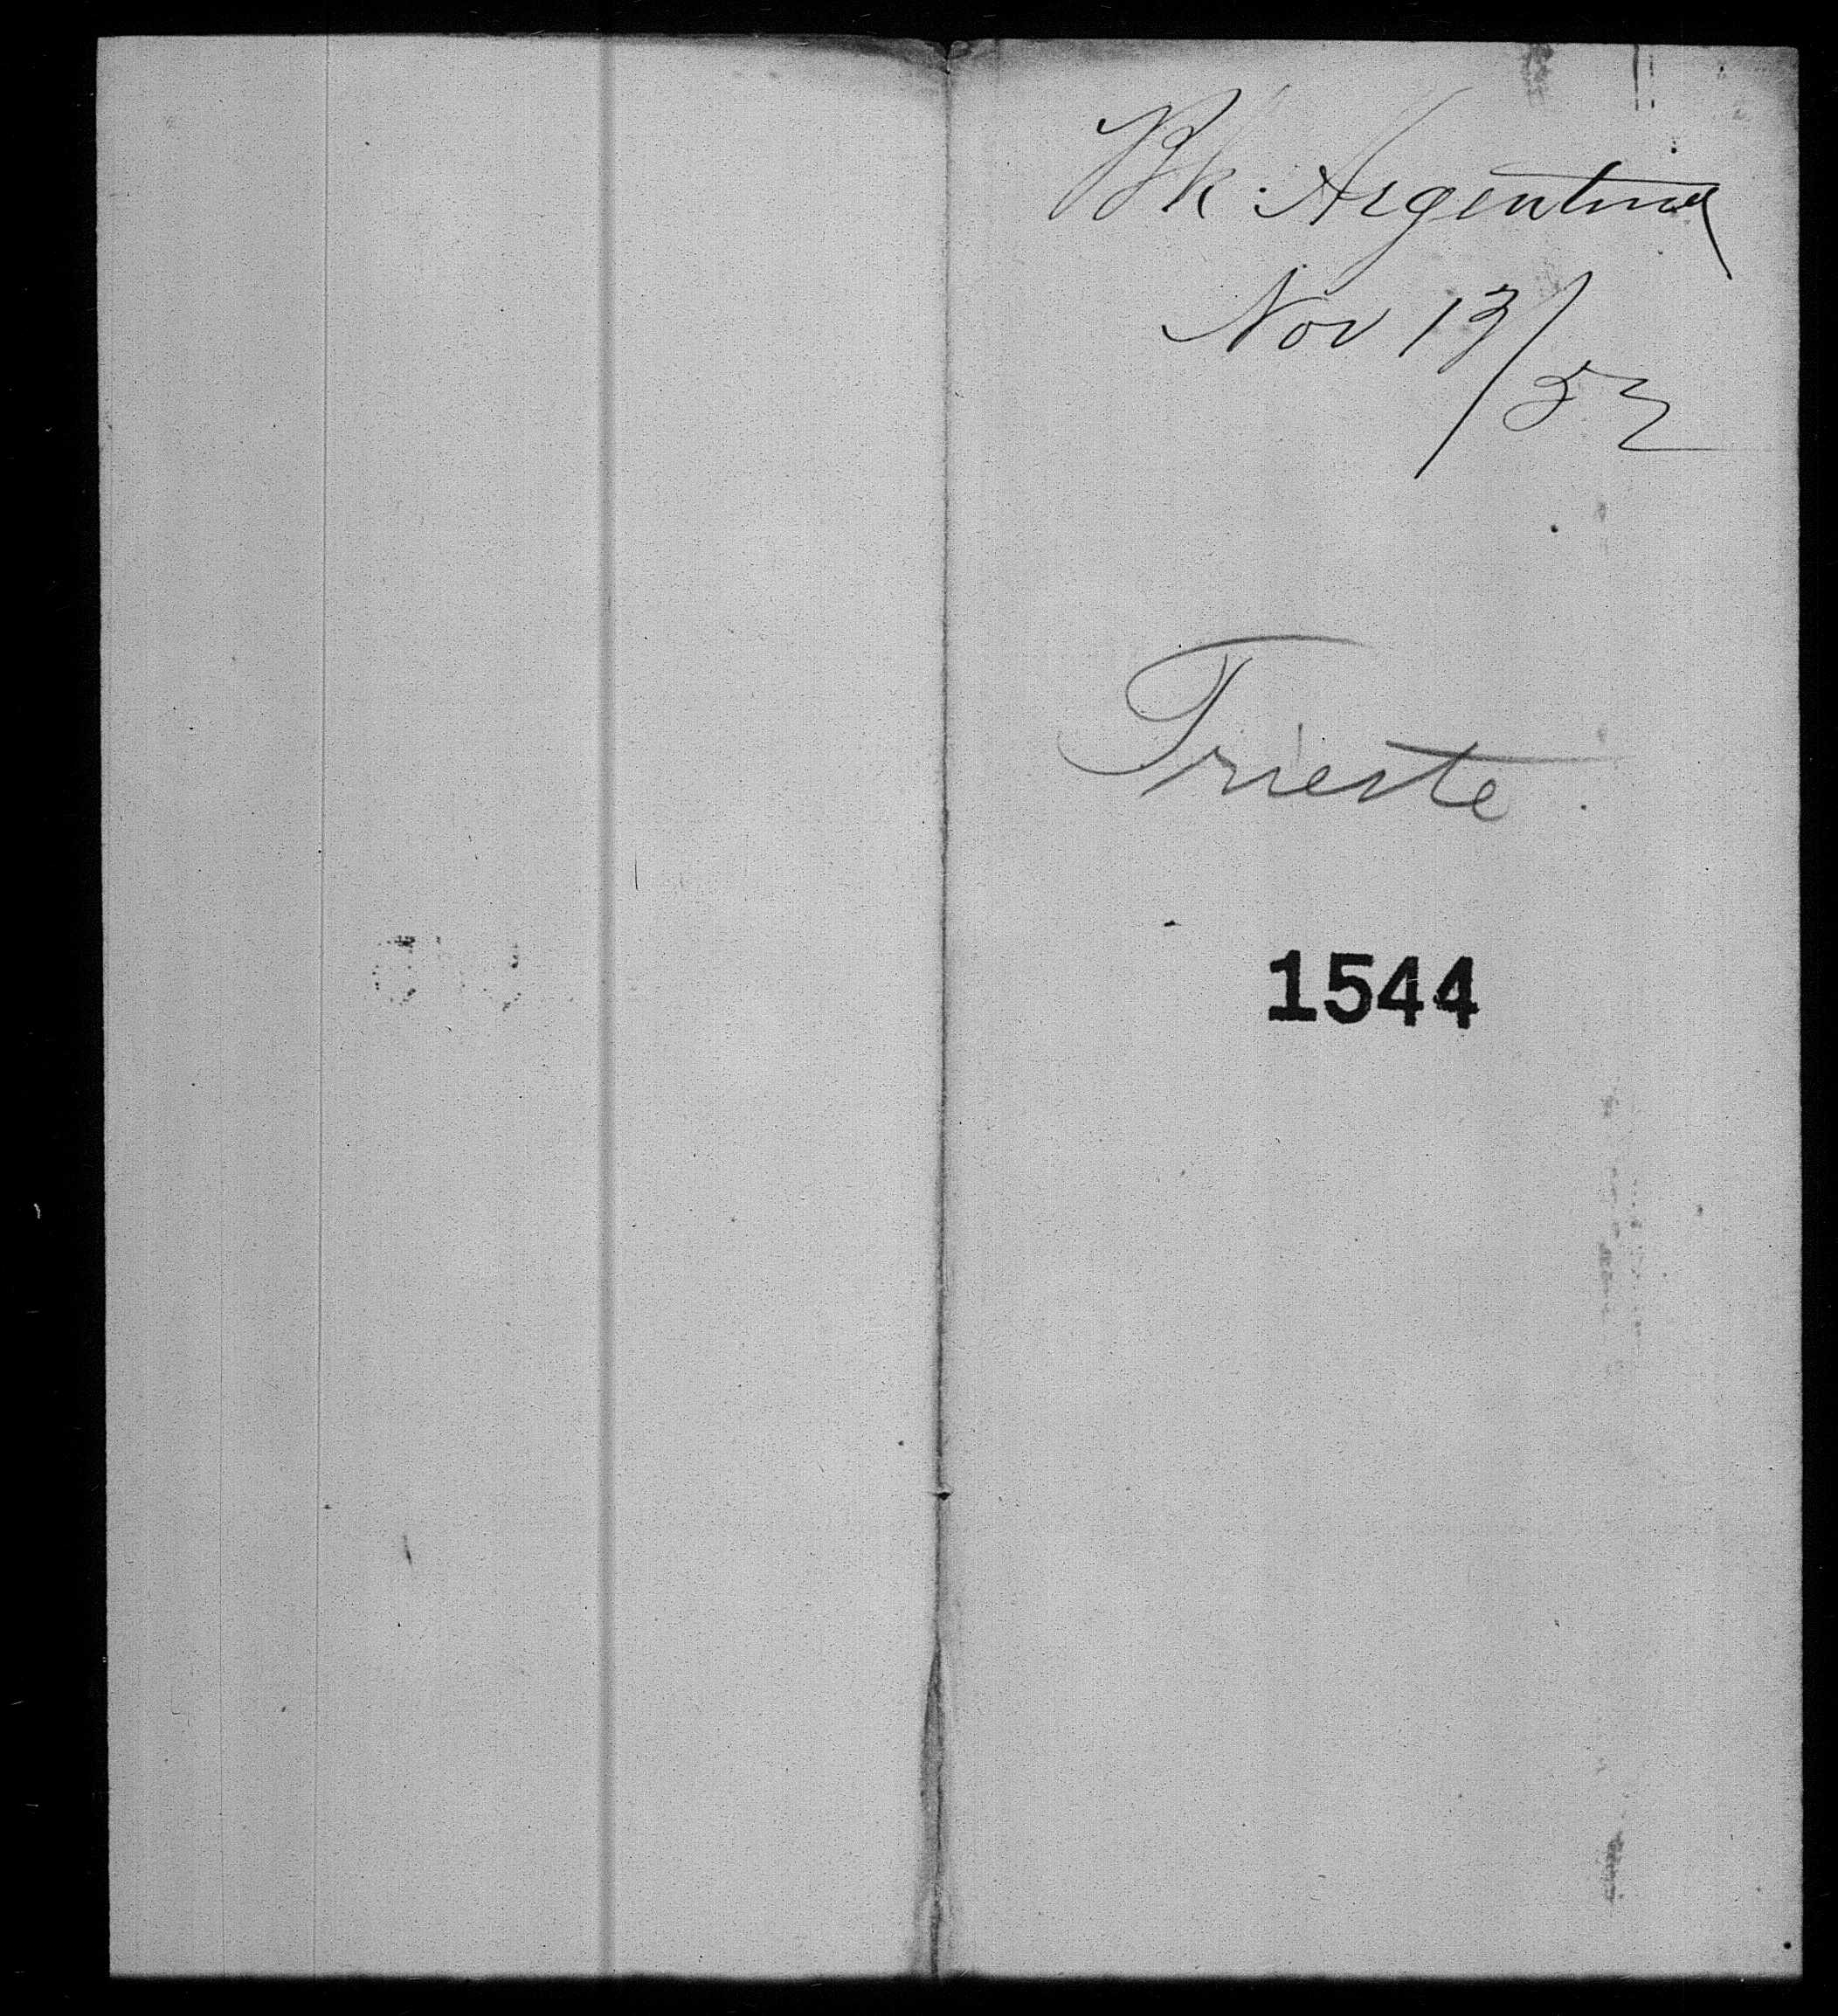 Bk. Argentina
Nov 13/52
Trieste
1544